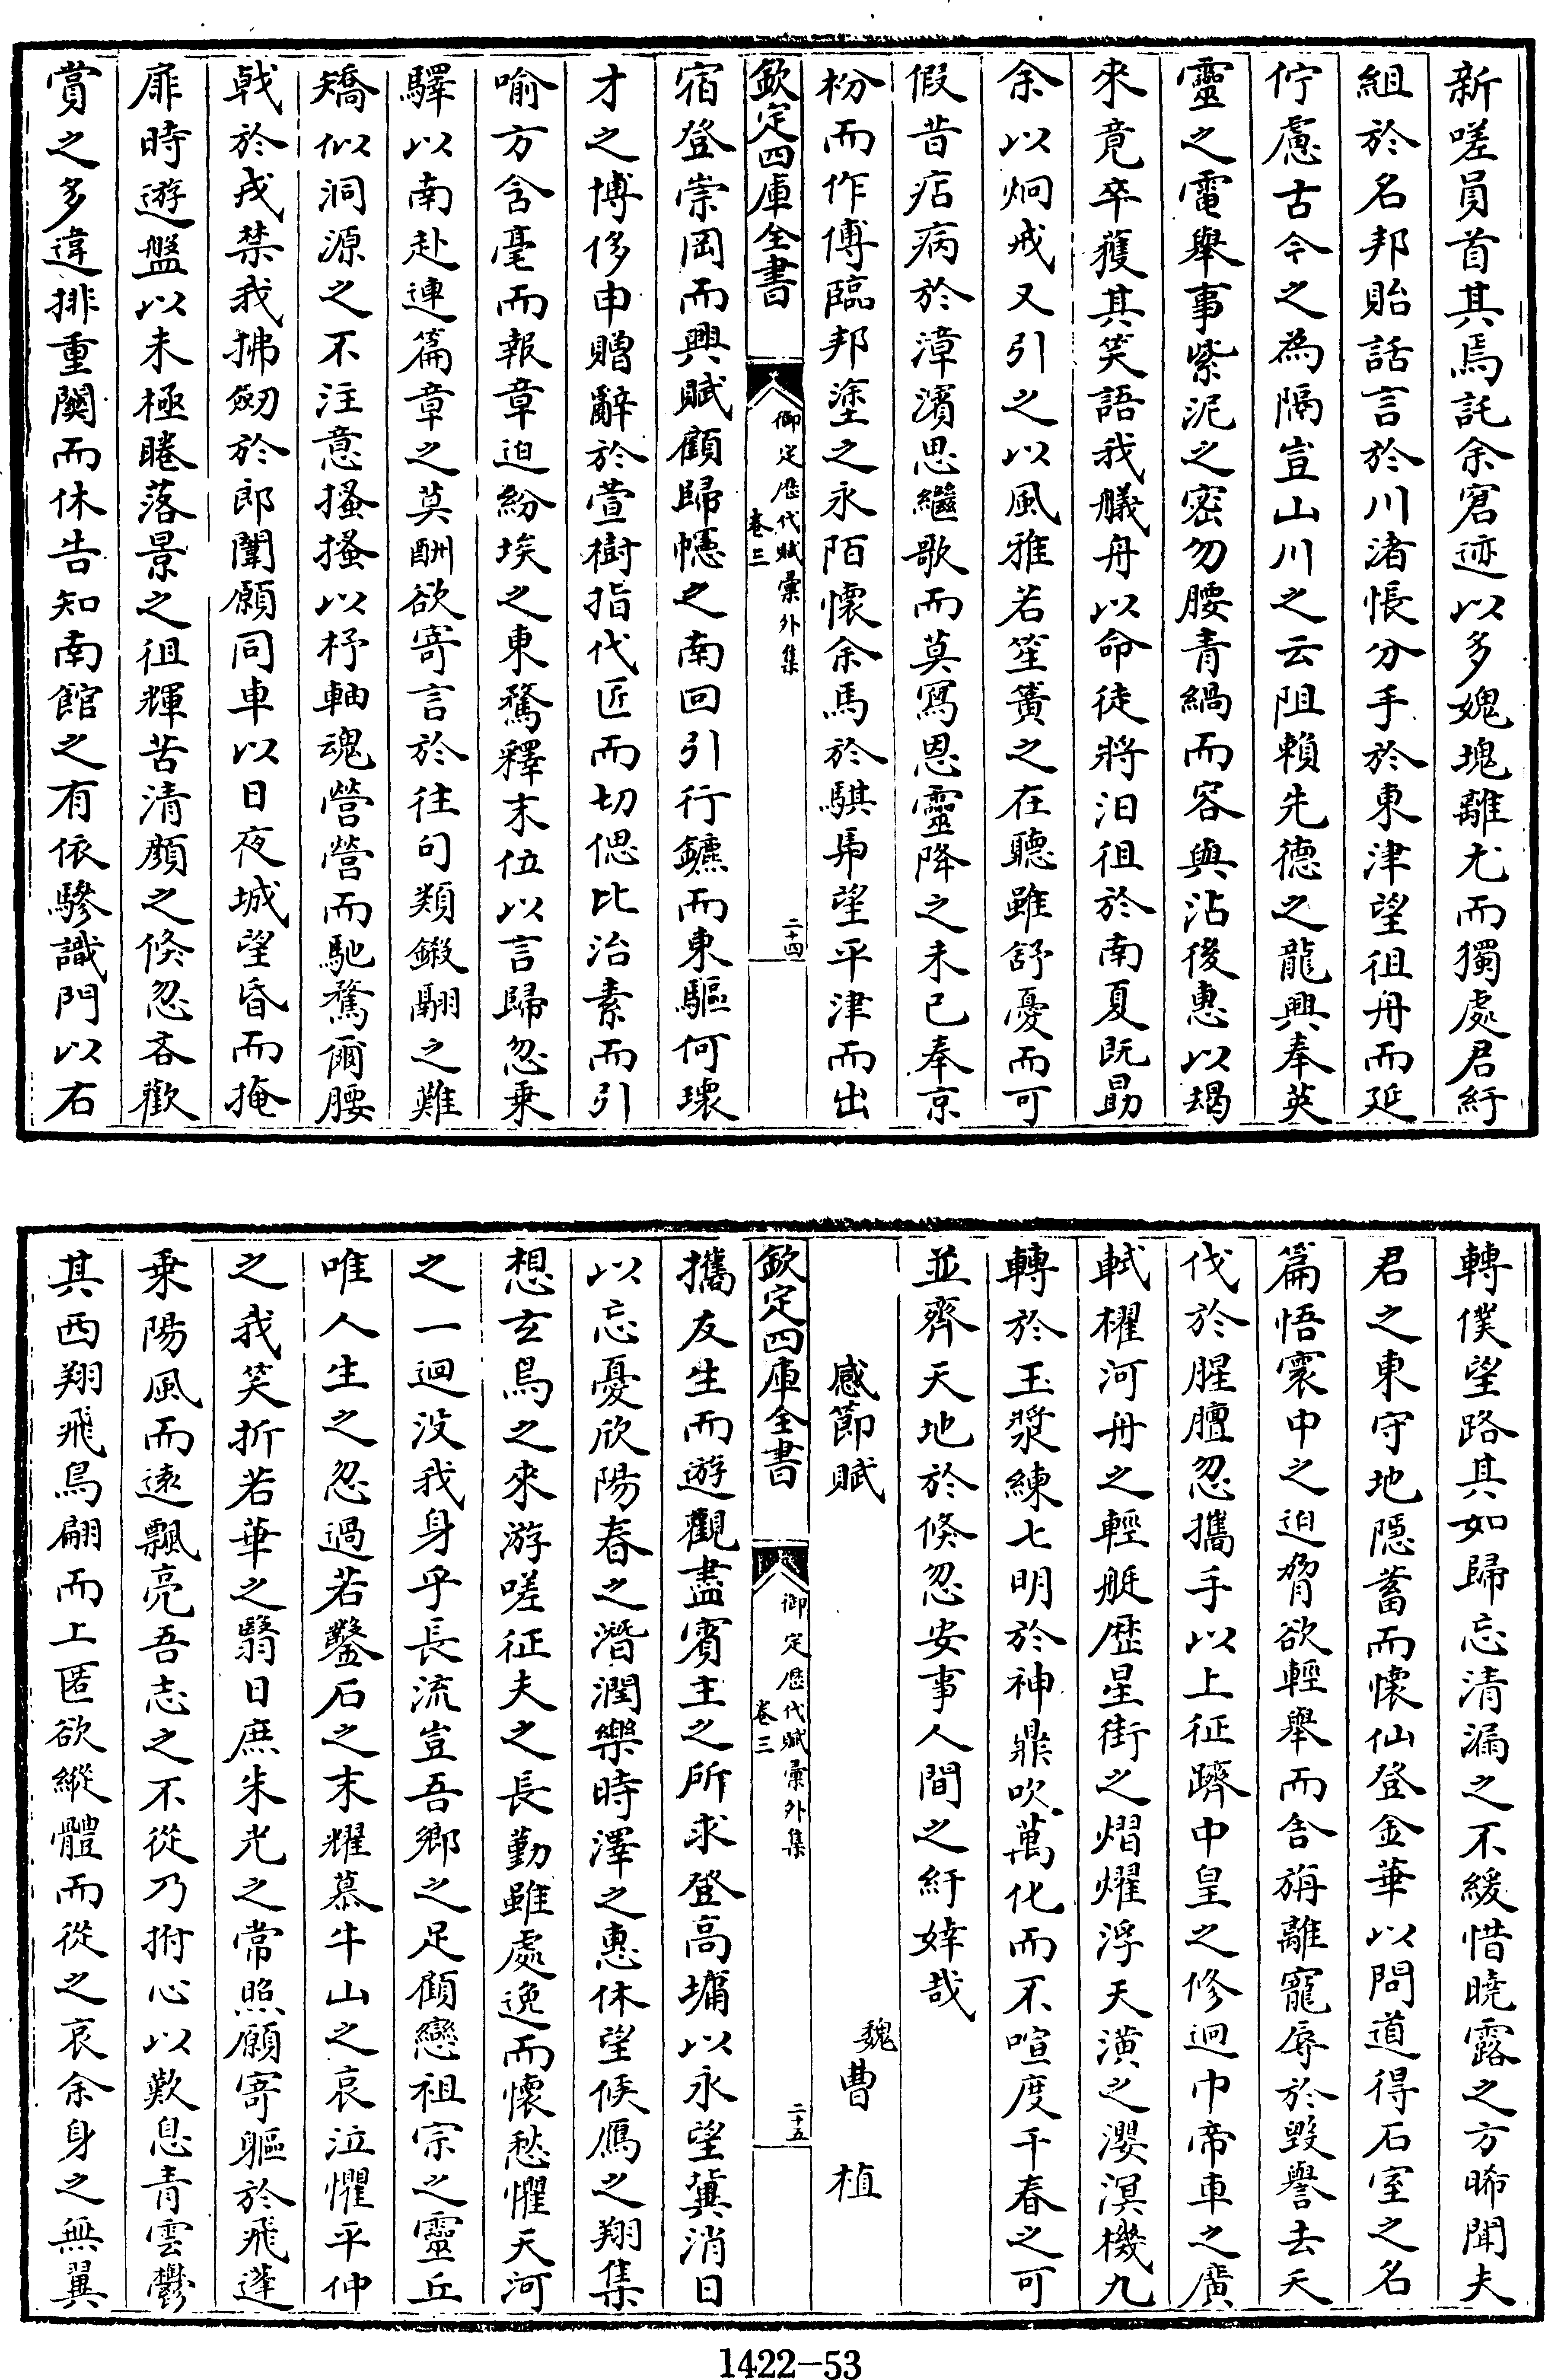 新嗟員首其焉託余窘迹以多媿塊離尤而獨處君紆
組於名邦貽話言於川渚悵分手於東津望徂舟而延
佇慮古今之為隔豈山川之云阻賴先德之龍興奉英
靈之電舉事紫泥之密勿腰青緺而容與沾後惠以竭
來竟卒獲其笑語我艤舟以命徒將汨徂於南夏既勗
余以炯戒又引之以風雅若笙簧之在聽雖舒憂而可
假昔痁病於漳濱思繼歌而莫寫恩靈降之未已奉京
枌而作傅臨邦塗之永陌懷余馬於騏馵望平津而出
欽定四庫全書
御定歷代賦彙外集
卷三
二十四
宿登崇岡而興賦顧歸幰之南回引行鑣而東驅何瓌
才之博侈申贈辭於萱樹指代匠而切偲比治素而引
喻方含毫而報章迫紛埃之東騖釋末位以言歸忽乗
驛以南赴連篇章之莫酬欲寄言於往句類鎩翮之難
矯似洞源之不注意搔搔以杼軸魂營營而馳騖爾腰
戟於戎禁我拂劒於郎闈願同車以日夜城望昏而掩
扉時遊盤以未極睠落景之徂輝苦清顏之倐忽吝歡
賞之多違排重闗而休告知南館之有依驂識門以右
轉僕望路其如歸忘清漏之不緩惜曉露之方晞聞夫
君之東守地隱蓄而懷仙登金華以問道得石室之名
篇悟寰中之迫脅欲輕舉而舍旃離寵辱於毀譽去夭
伐於腥膻忽攜手以上征躋中皇之修迥巾帝車之廣
軾櫂河舟之輕艇歷星街之熠燿浮天潢之瀴溟機九
轉於玉漿練七明於神鼎吹萬化而不喧度千春之可
並齊天地於倐忽安事人間之紆婞哉
感節賦
魏曹植
欽定四庫全書
御定歷代賦彙外集
卷三
二十五
攜友生而遊觀盡賓主之所求登高墉以永望冀消日
以忘憂欣陽春之潛潤樂時澤之惠休望候鴈之翔集
想玄鳥之來游嗟征夫之長勤雖處逸而懷愁懼天河
之一迴没我身乎長流豈吾鄉之足顧戀祖宗之靈丘
唯人生之忽過若鑿石之末耀慕牛山之哀泣懼平仲
之我笑折若華之翳日庶朱光之常照願寄軀於飛蓬
乗陽風而遠飄亮吾志之不從乃拊心以歎息青雲鬱
其西翔飛鳥翩而上匿欲縱體而從之哀余身之無翼
1422—53